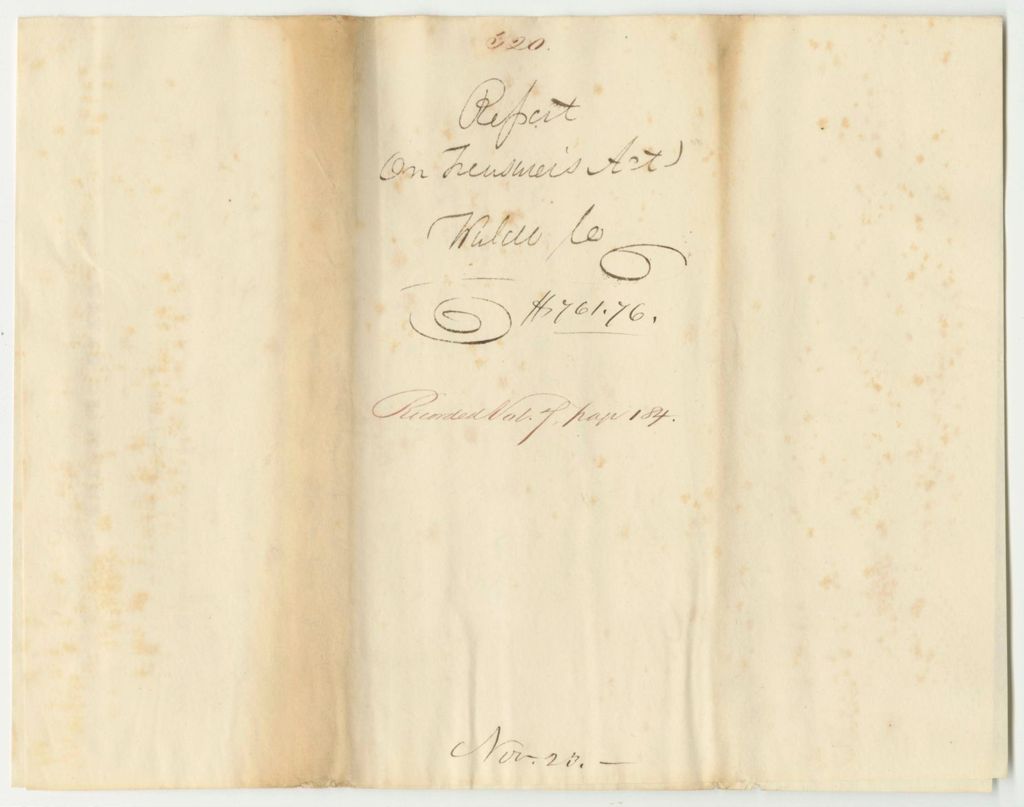 320.
Report
On Treasurer's Act
Waldo Co
$761.76.
Recorded Vol. 7, page 184.
Nov. 23. —